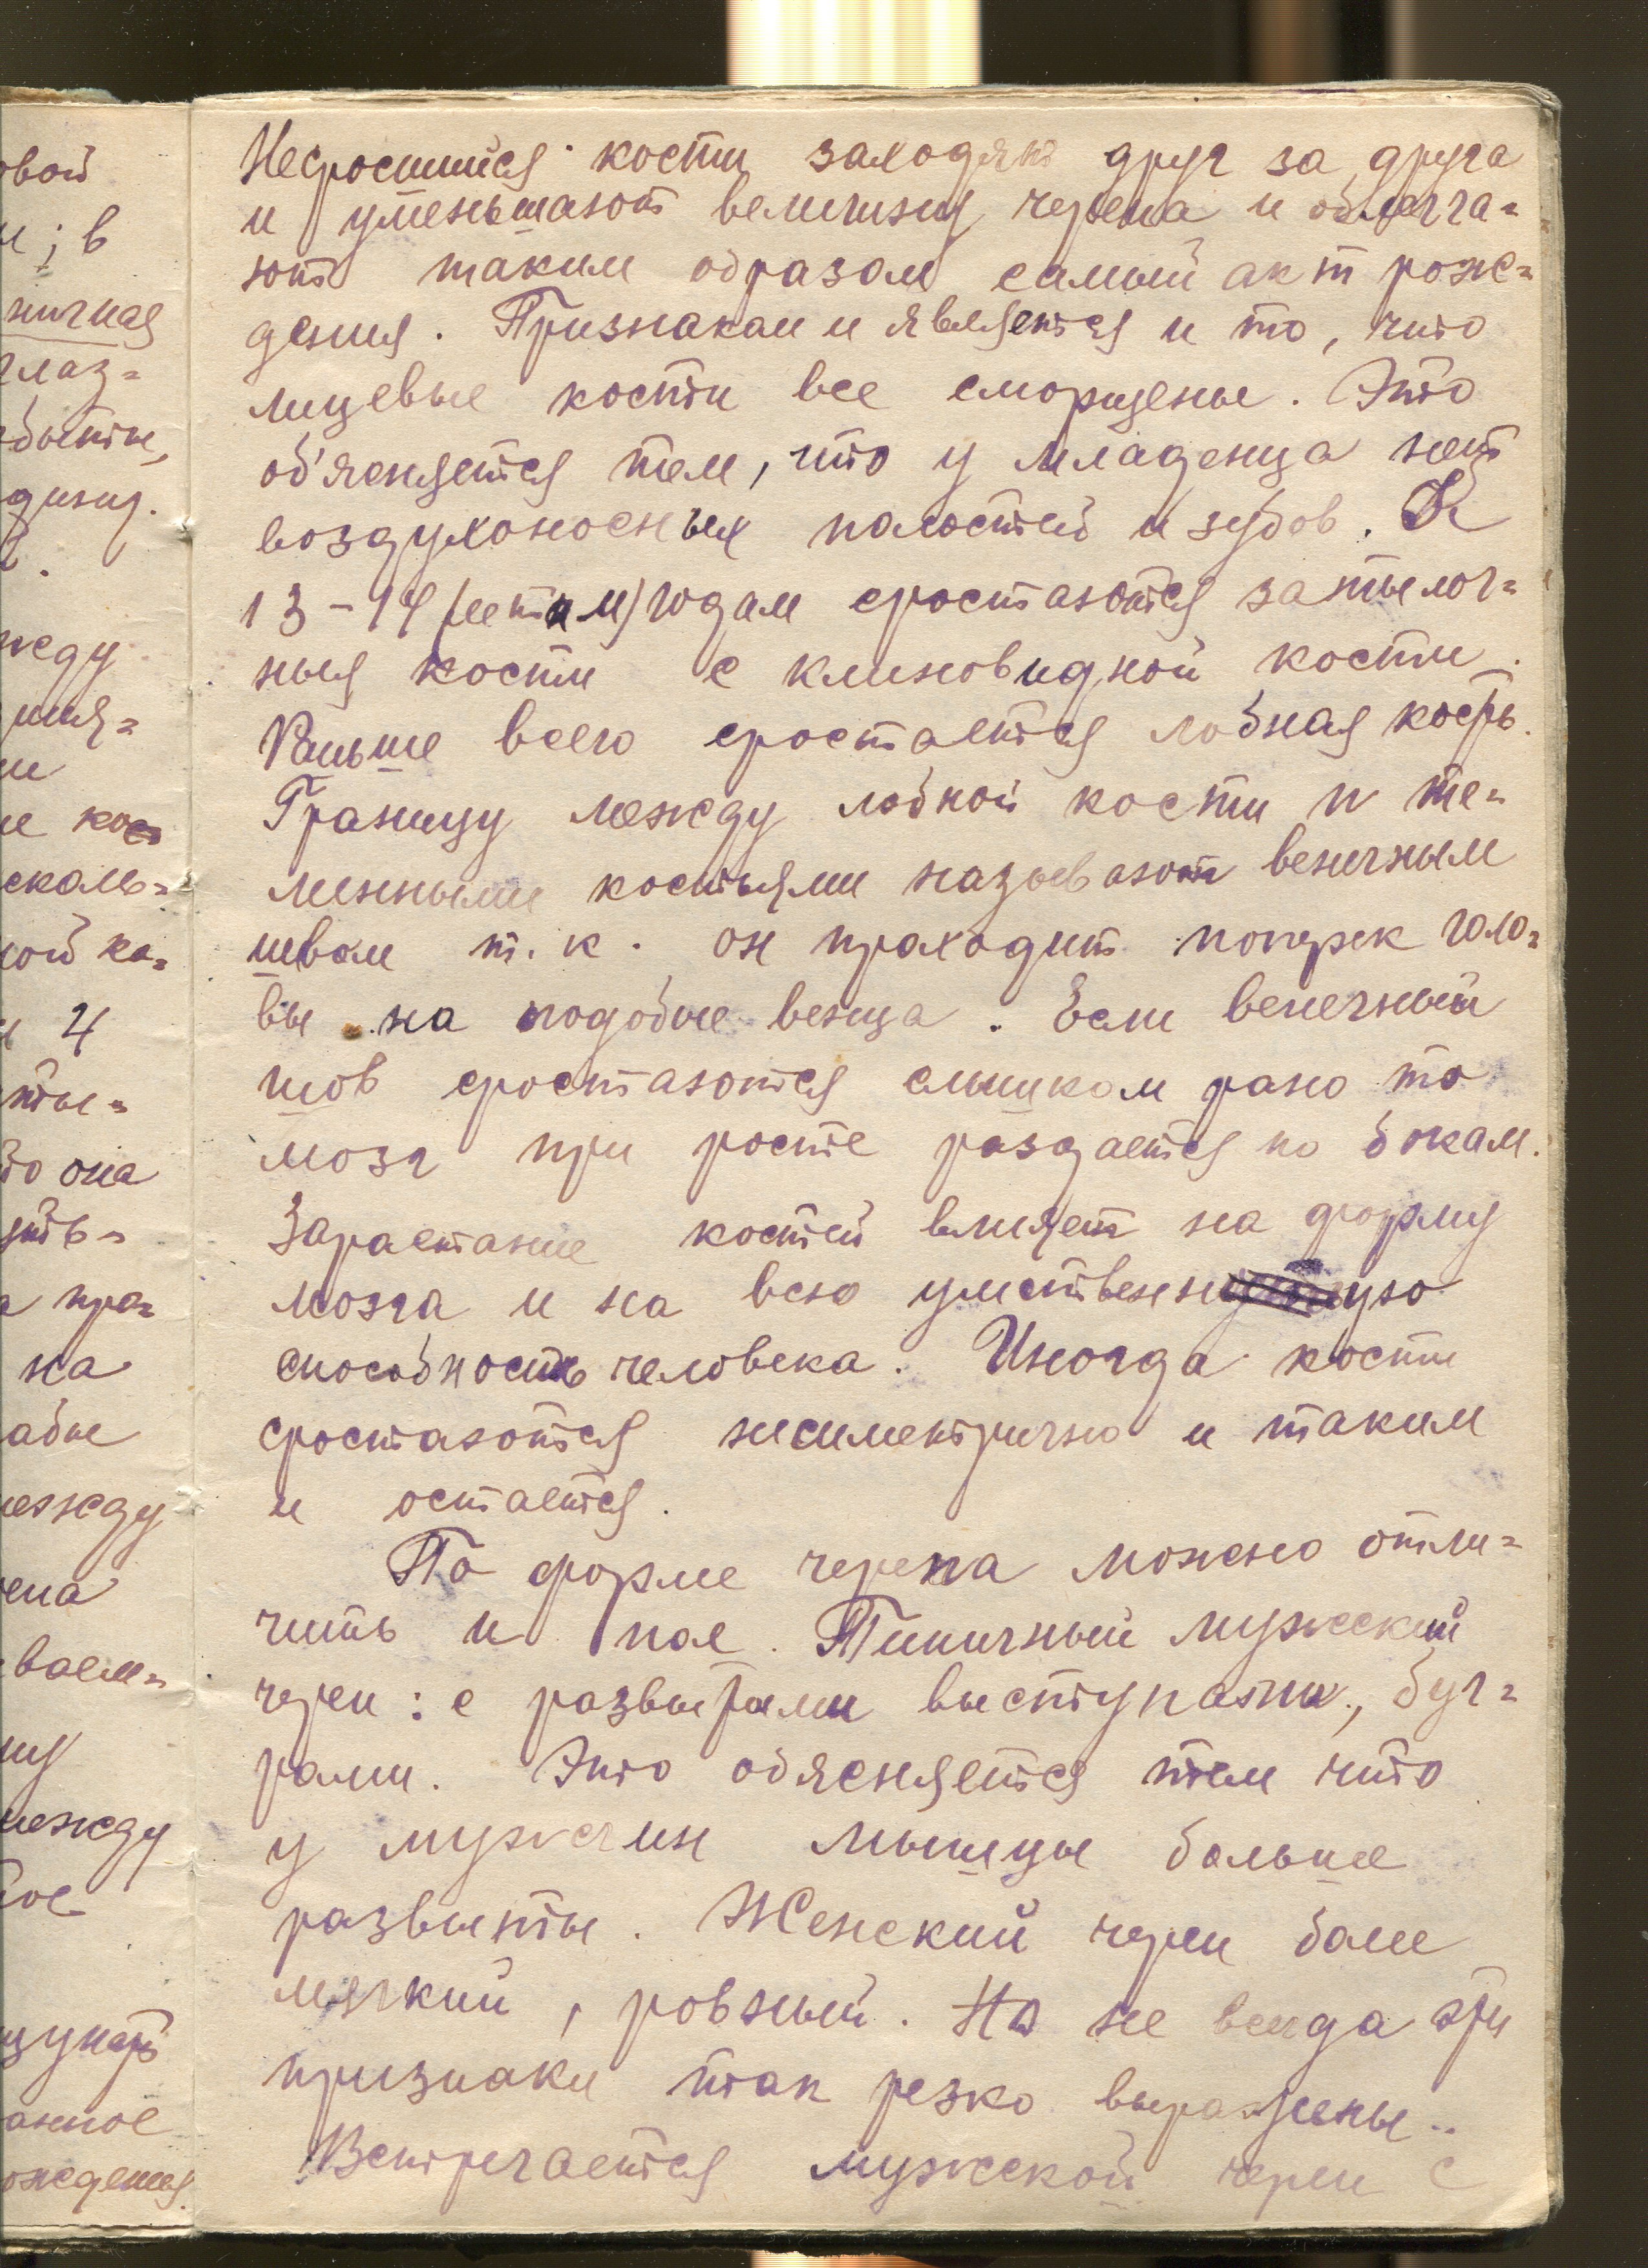 овой
и; в
ничная
глаз=
бытие,
динид.
жеду
шия=
и
е кост
скаль=
ной ка=
и 4
ты=
бо она
уть=
а пра=
на
абые
между
ена
ваем=
ну
между
ое
щупать
анное
ождения.
Несросшийся кости заходят друг за друга
и уменьшают величину черепа и облегча=
ют таким образом самый акт рож=
дения. Признаками является и то, что
лицевые кости все сморщены. Это
об'ясняется тем, что у младенца нет
воздухоносных полостей и зубов. К
13-14 (летам) годам сростаются затылоч=
ныя кости с клиновидной кости.
Раньше всего сростается лобная кость.
Границу между лобной кости и те=
менными костьями называют веничным
швом т.к. он проходит поперек голо=
вы на подобие венца. Если венечный
шов сростаются слишком рано то
мозг при росте раздается по бокам.
Зарастание костей влияет на форму
мозга и на всю умственную
способность человека. Иногда кости
сростаются несиметрично и таким
и остается.
По форме черепа можно отли=
чить и пол. Типичный мужеский
череп: с развытыми выступами, буг=
рами. Это обясняется тем что
у мужчин мышцы больше
развыты. Женский череп боле
мягкий, ровный. Но не всегда эти
признаки так резко выражены..
Встречается мужеской череп с